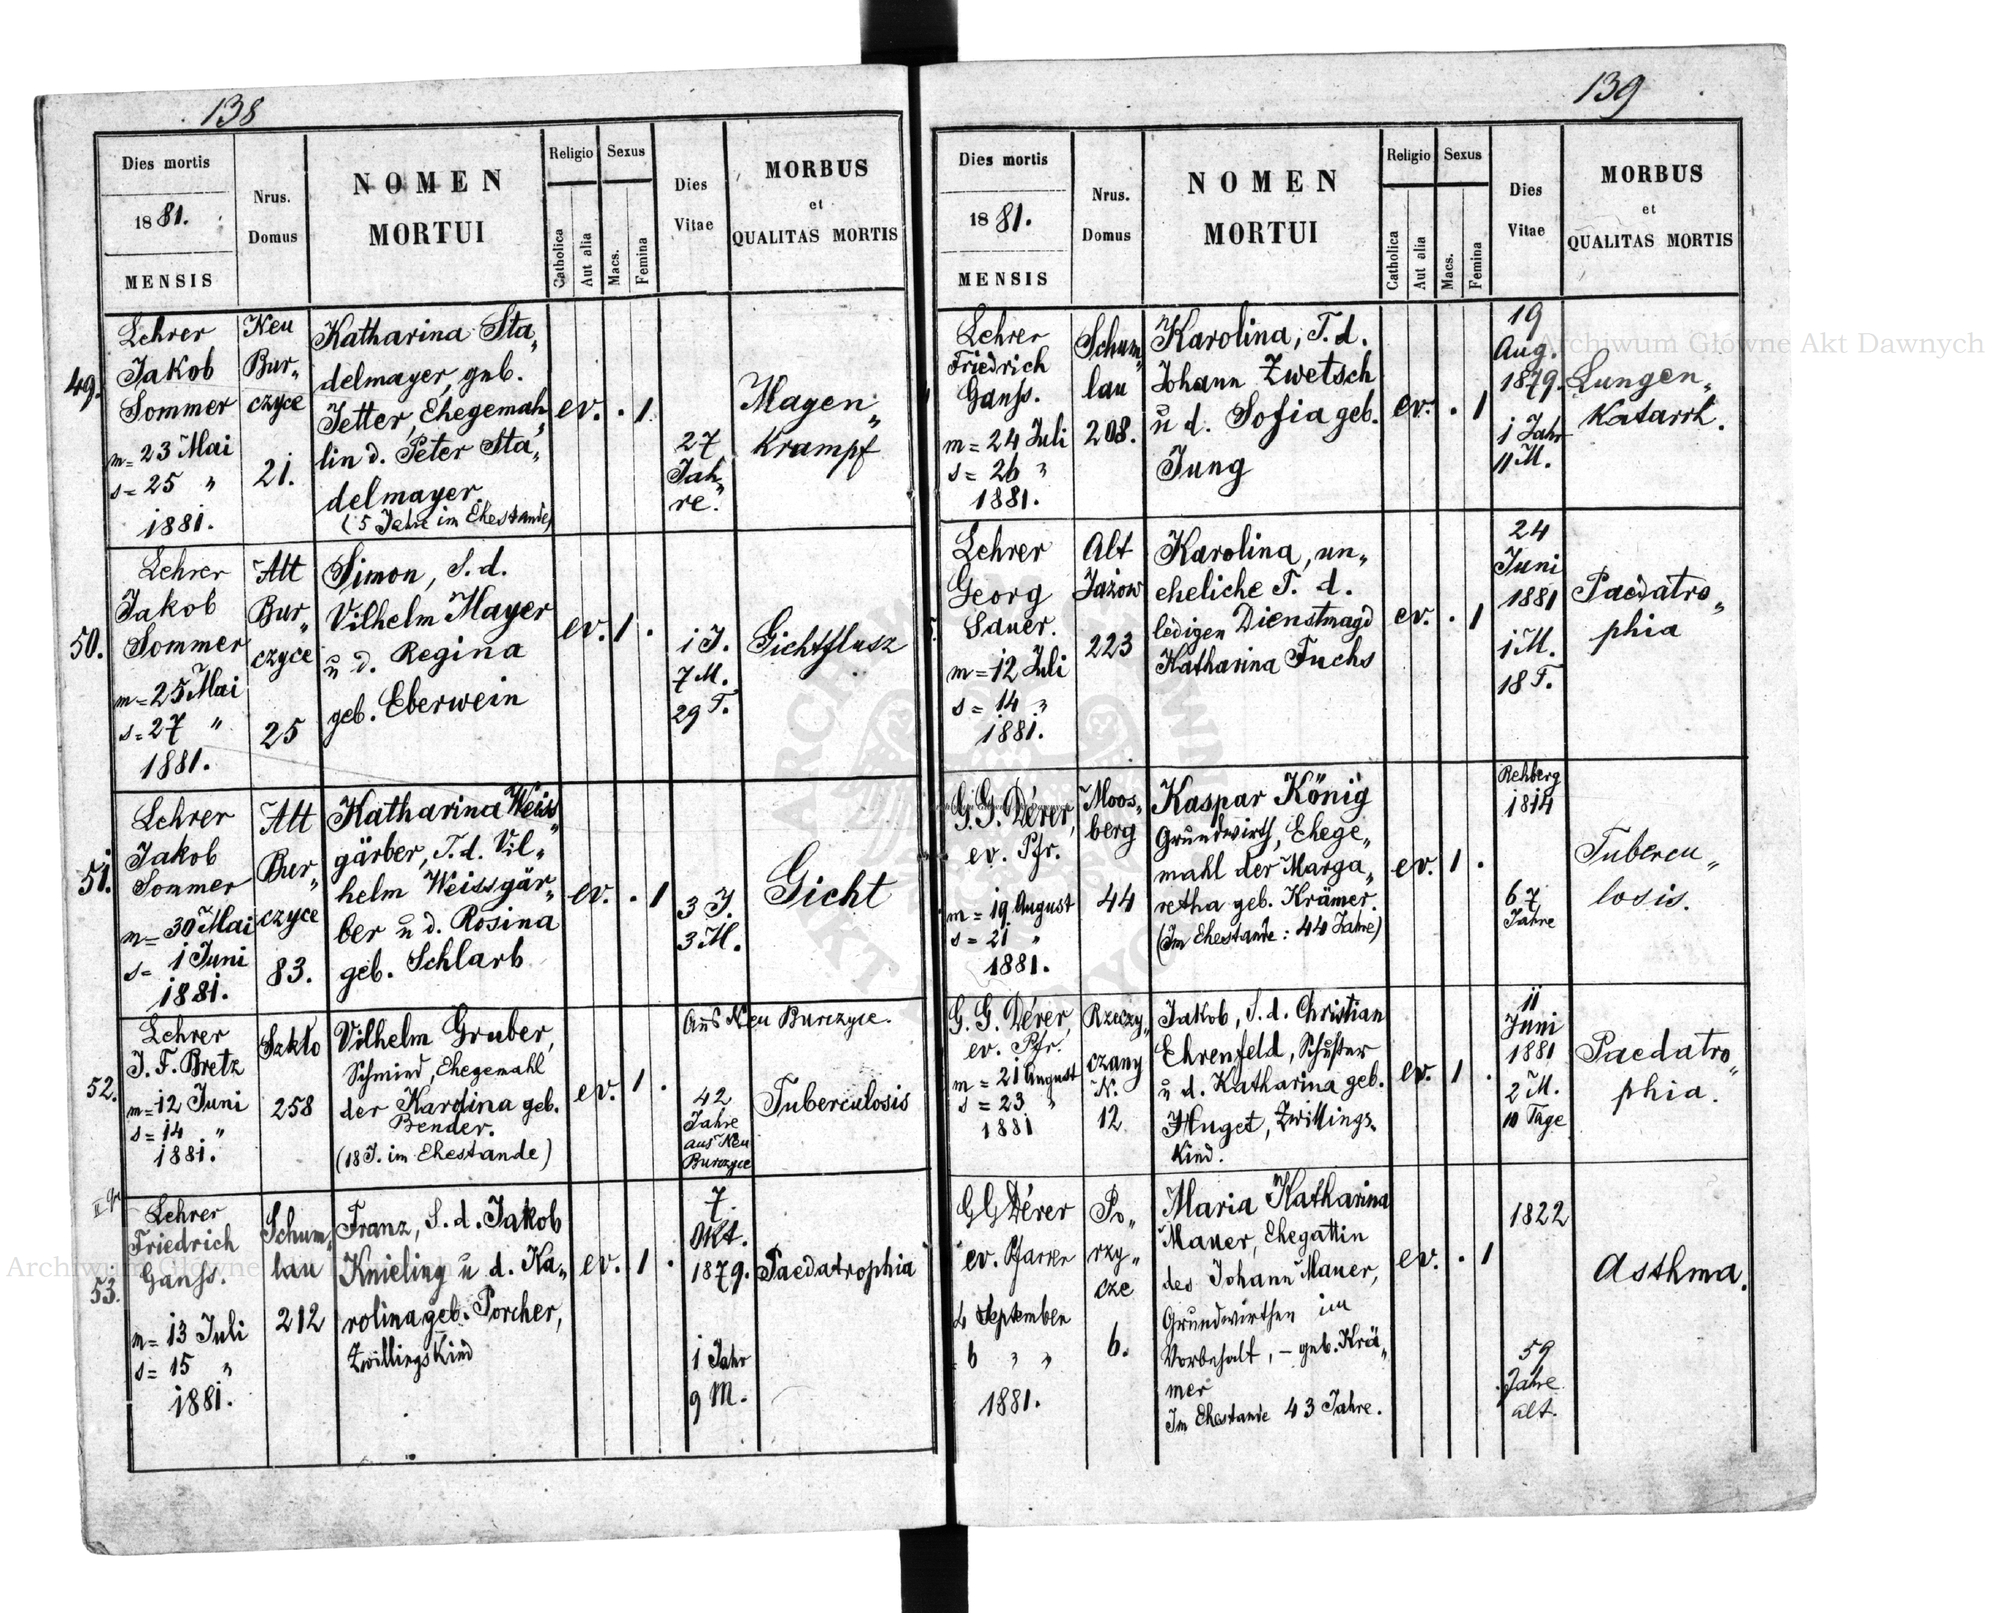 138
Dies mortis
1881.
MENSIS
Nrus.
Domus
NOMEN
MORTUI
Religio
Catholica
Aut alia
Sexus
Macs.
Femina
Dies
Vitae
MORBUS
et
QUALITAS MORTIS
49.
Lehrer
Jakob
Sommer
m= 23 Mai
s= 25 "
1881.
Neu
Bur„
czyce
21.
Katharina Sta„
delmayer, geb.
Jetter, Ehegemah„
lin d. Peter Sta„
delmayer.
(5 Jahre im Ehestande)
ev. . 1
27
Jah„
re.
Magen„
Krampf
50.
Lehrer
Jakob
Sommer
m= 25 Mai
s= 27 "
1881.
Alt
Bur„
czyce
25
Simon, S. d.
Vilhelm Mayer
u d. Regina
geb. Eberwein
ev. 1 .
1 J.
7 M.
29 T.
Gichtflusz
51.
Lehrer
Jakob
Sommer
m= 30 Mai
s= 1 Juni
1881.
Alt
Bur„
czyce
83.
Katharina Weiss„
gärber, T. d. Vil„
helm Weissgär„
ber u d. Rosina
geb. Schlarb
ev. . 1
3 J.
3 M.
Gicht
52.
Lehrer
J. F. Bretz
m= 12 Juni
s= 14 "
1881.
Szkto
258
Vilhelm Gruber,
Schmied, Ehegemahl
der Karolina geb.
Bender.
(18 J. im Ehestande)
ev. 1 .
Aus Neu Burczyce.
42
Jahre
aus Neu
Burczyce
Tuberculosis
53.
Lehrer
Friedrich
Ganss.
m= 13 Juli
s= 15 "
1881.
Schum„
lau
212
Franz, S. d. Jakob
Knieling u d. Ka„
rolina geb. Porcher,
Zwillingskind
ev. 1 .
7.
Okt.
1879.
1 Jahr
9 M.
Paedatrophia
139
Dies mortis
1881.
MENSIS
Nrus.
Domus
NOMEN
MORTUI
Religio
Catholica
Aut alia
Sexus
Macs.
Femina
Dies
Vitae
MORBUS
et
QUALITAS MORTIS
Lehrer
Friedrich
Ganss.
m= 24 Juli
s= 26 "
1881.
Schum„
lau
208.
Karolina, T. d.
Johann Zwetsch
u d. Sofia geb.
Jung
ev. . 1
19
Aug.
1879.
1 Jahr
11 M.
Lungen„
Katarrh.
Lehrer
Georg
Sauer.
m= 12 Juli
s= 14 "
1881.
Alt
Jazow
223
Karolina, un„
eheliche T. d.
ledigen Dienstmagd
Katharina Fuchs
ev. . 1
24
Juni
1881
1 M.
18 T.
Paedatro„
phia
G. G. Dérer,
ev. Pfr.
m= 19 August
s= 21 "
1881.
Moos„
berg
44
Kaspar König
Grundwirth, Ehege„
mahl der Marga„
retha geb. Krämer.
(Im Ehestande: 44 Jahre)
ev. 1 .
Rehberg
1814
67
Jahre
Tubercu„
losis.
G. G. Dérer,
ev. Pfr.
m= 21 August
s= 23 "
1881
Rzeczy„
czany
N.
12
Jakob, S. d. Christian
Ehrenfeld, Schuster
u d. Katharina geb.
Huget, Zwillings„
Kind.
ev. 1 .
11
Juni
1881
2 M.
10 Tage
Paedatro„
phia.
G G Dérer
ev. Pfarrer
4 September
6 " "
1881.
Po„
rzy„
cze
6.
Maria Katharina
Mauer, Ehegattin
des Johann Mauer,
Grundwirthen im
Vorbehalt, – geb. Krä„
mer
Im Ehestande 43 Jahre.
ev. . 1
1822
59
Jahre
alt.
Asthma.
Archiwum Główne Akt Dawnych
Archiwum Główne Akt Dawnych
Archiwum Główne Akt Dawnych